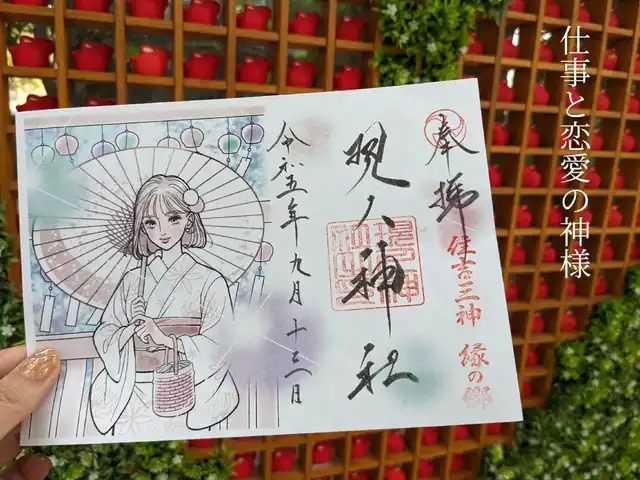 仕事と恋愛の神様
奉拝
住吉三神 縁の郷
現人神社
令和五年九月十三日